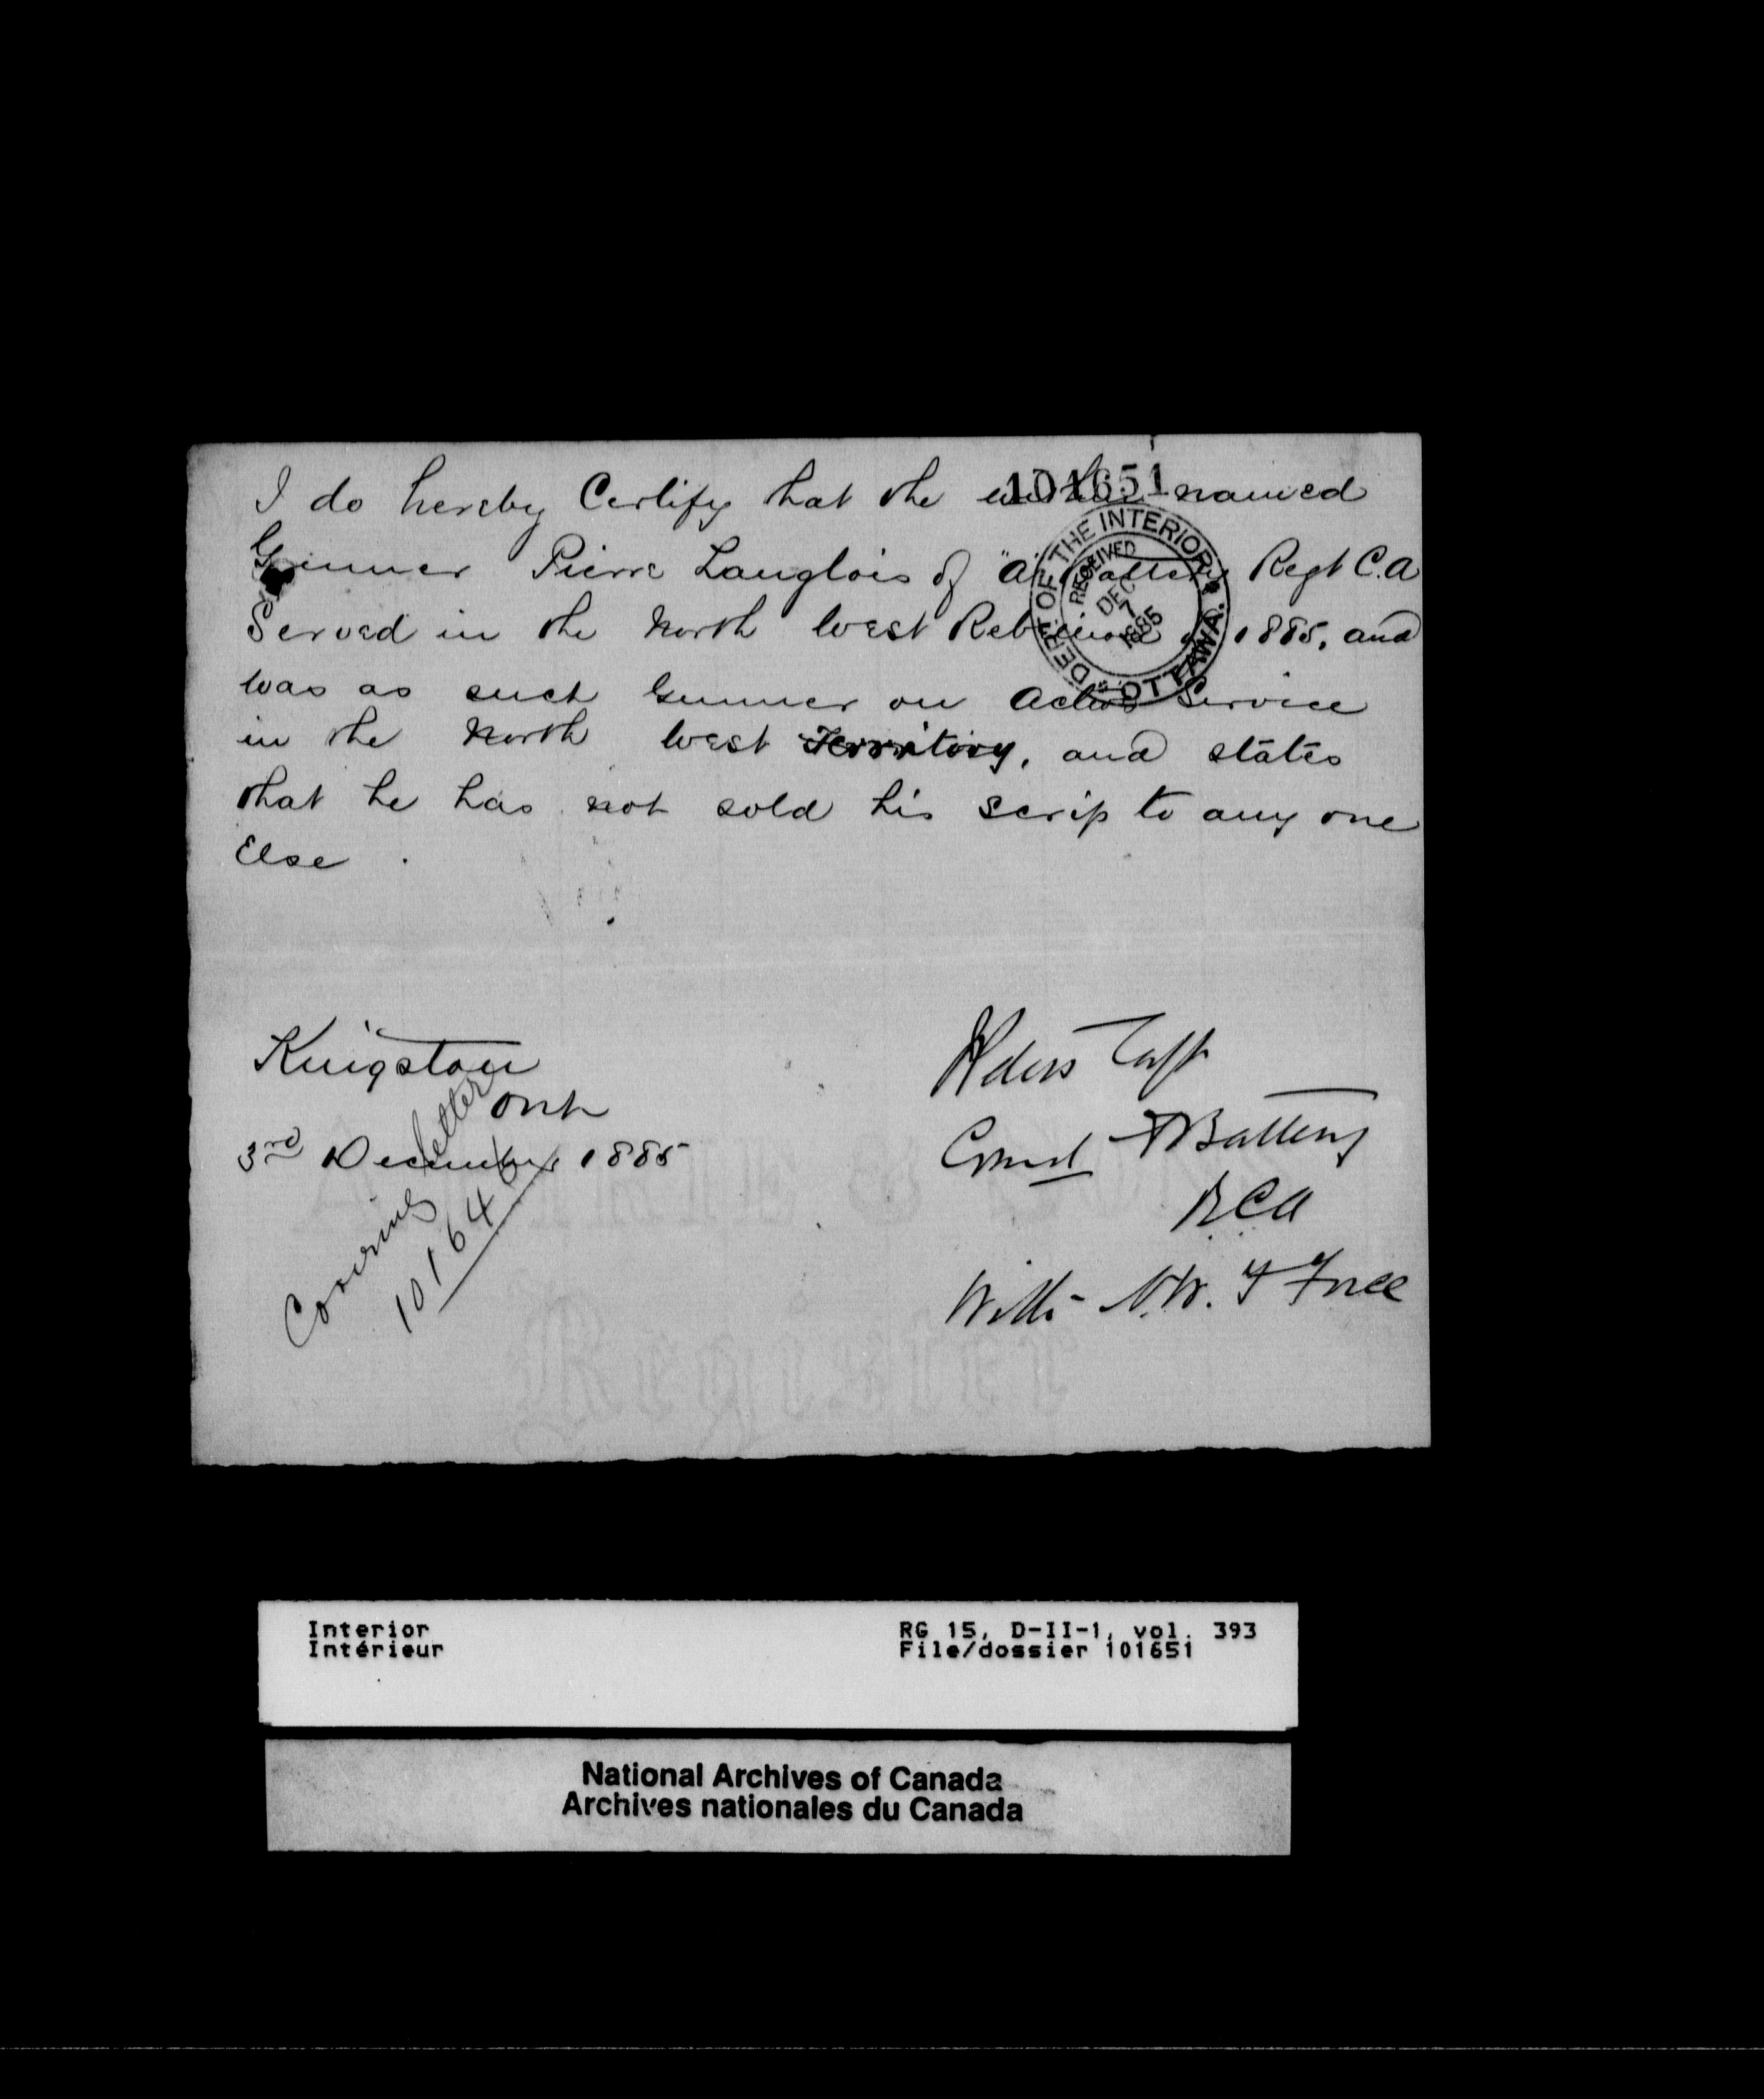 I do hereby Certify that the named
101651
Gunner Pierre Langlois of "A" Battery Regt C.A
Served in the North West Rebellion of 1885, and
was as such Gunner on Active Service
in the North West Territory, and states
that he has not sold his scrip to any one
Else.
DEPT. OF THE INTERIOR
RECEIVED
DEC
7
1885
OTTAWA.
Kingston
Ont
3rd December 1885
Covering letter
10164
Capt
Comd A Battery
RCA
N.W. F Force
Register
Interior
Intérieur
RG 15, D-II-1, vol. 393
File/dossier 101651
National Archives of Canada
Archives nationales du Canada